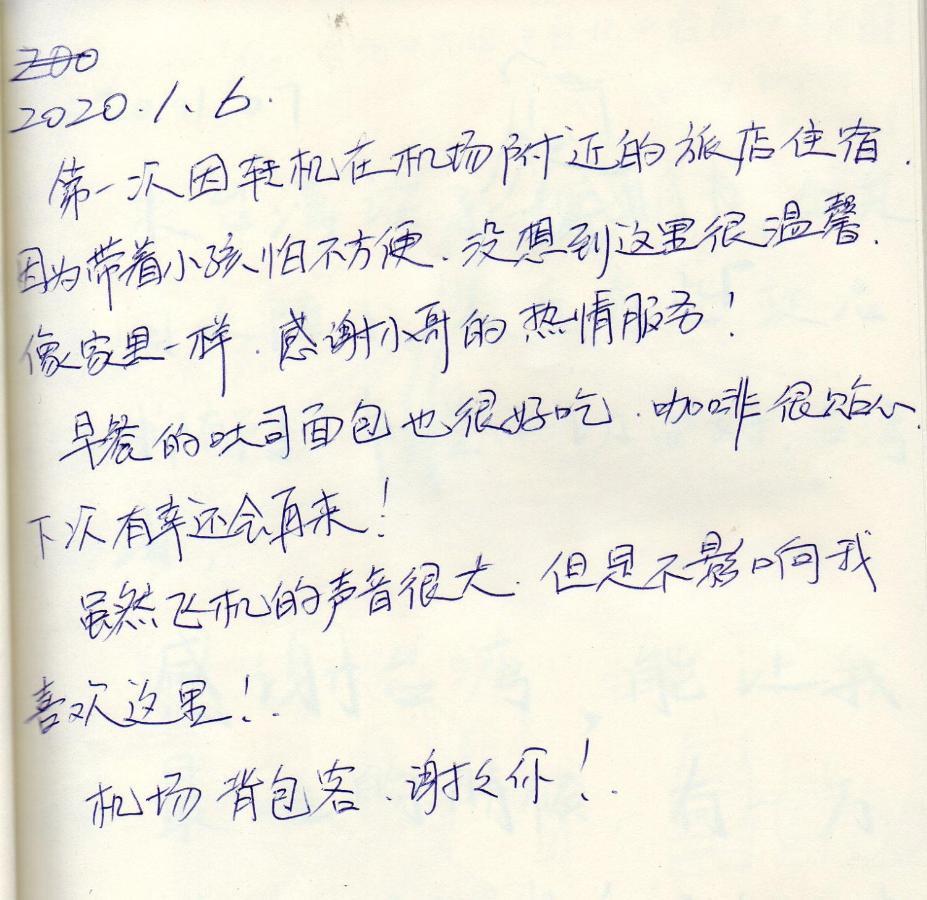 2020.1.6.
第一次因转机在机场附近的旅店住宿.
因为带着小孩,怕不方便.没想到这里很温馨.
像家里一样.感谢小哥的热情服务!
早餐的吐司面包也很好吃.咖啡很贴心.
下次有幸还会再来!
虽然飞机的声音很大.但是不影响我
喜欢这里!
机场背包客.谢谢你!